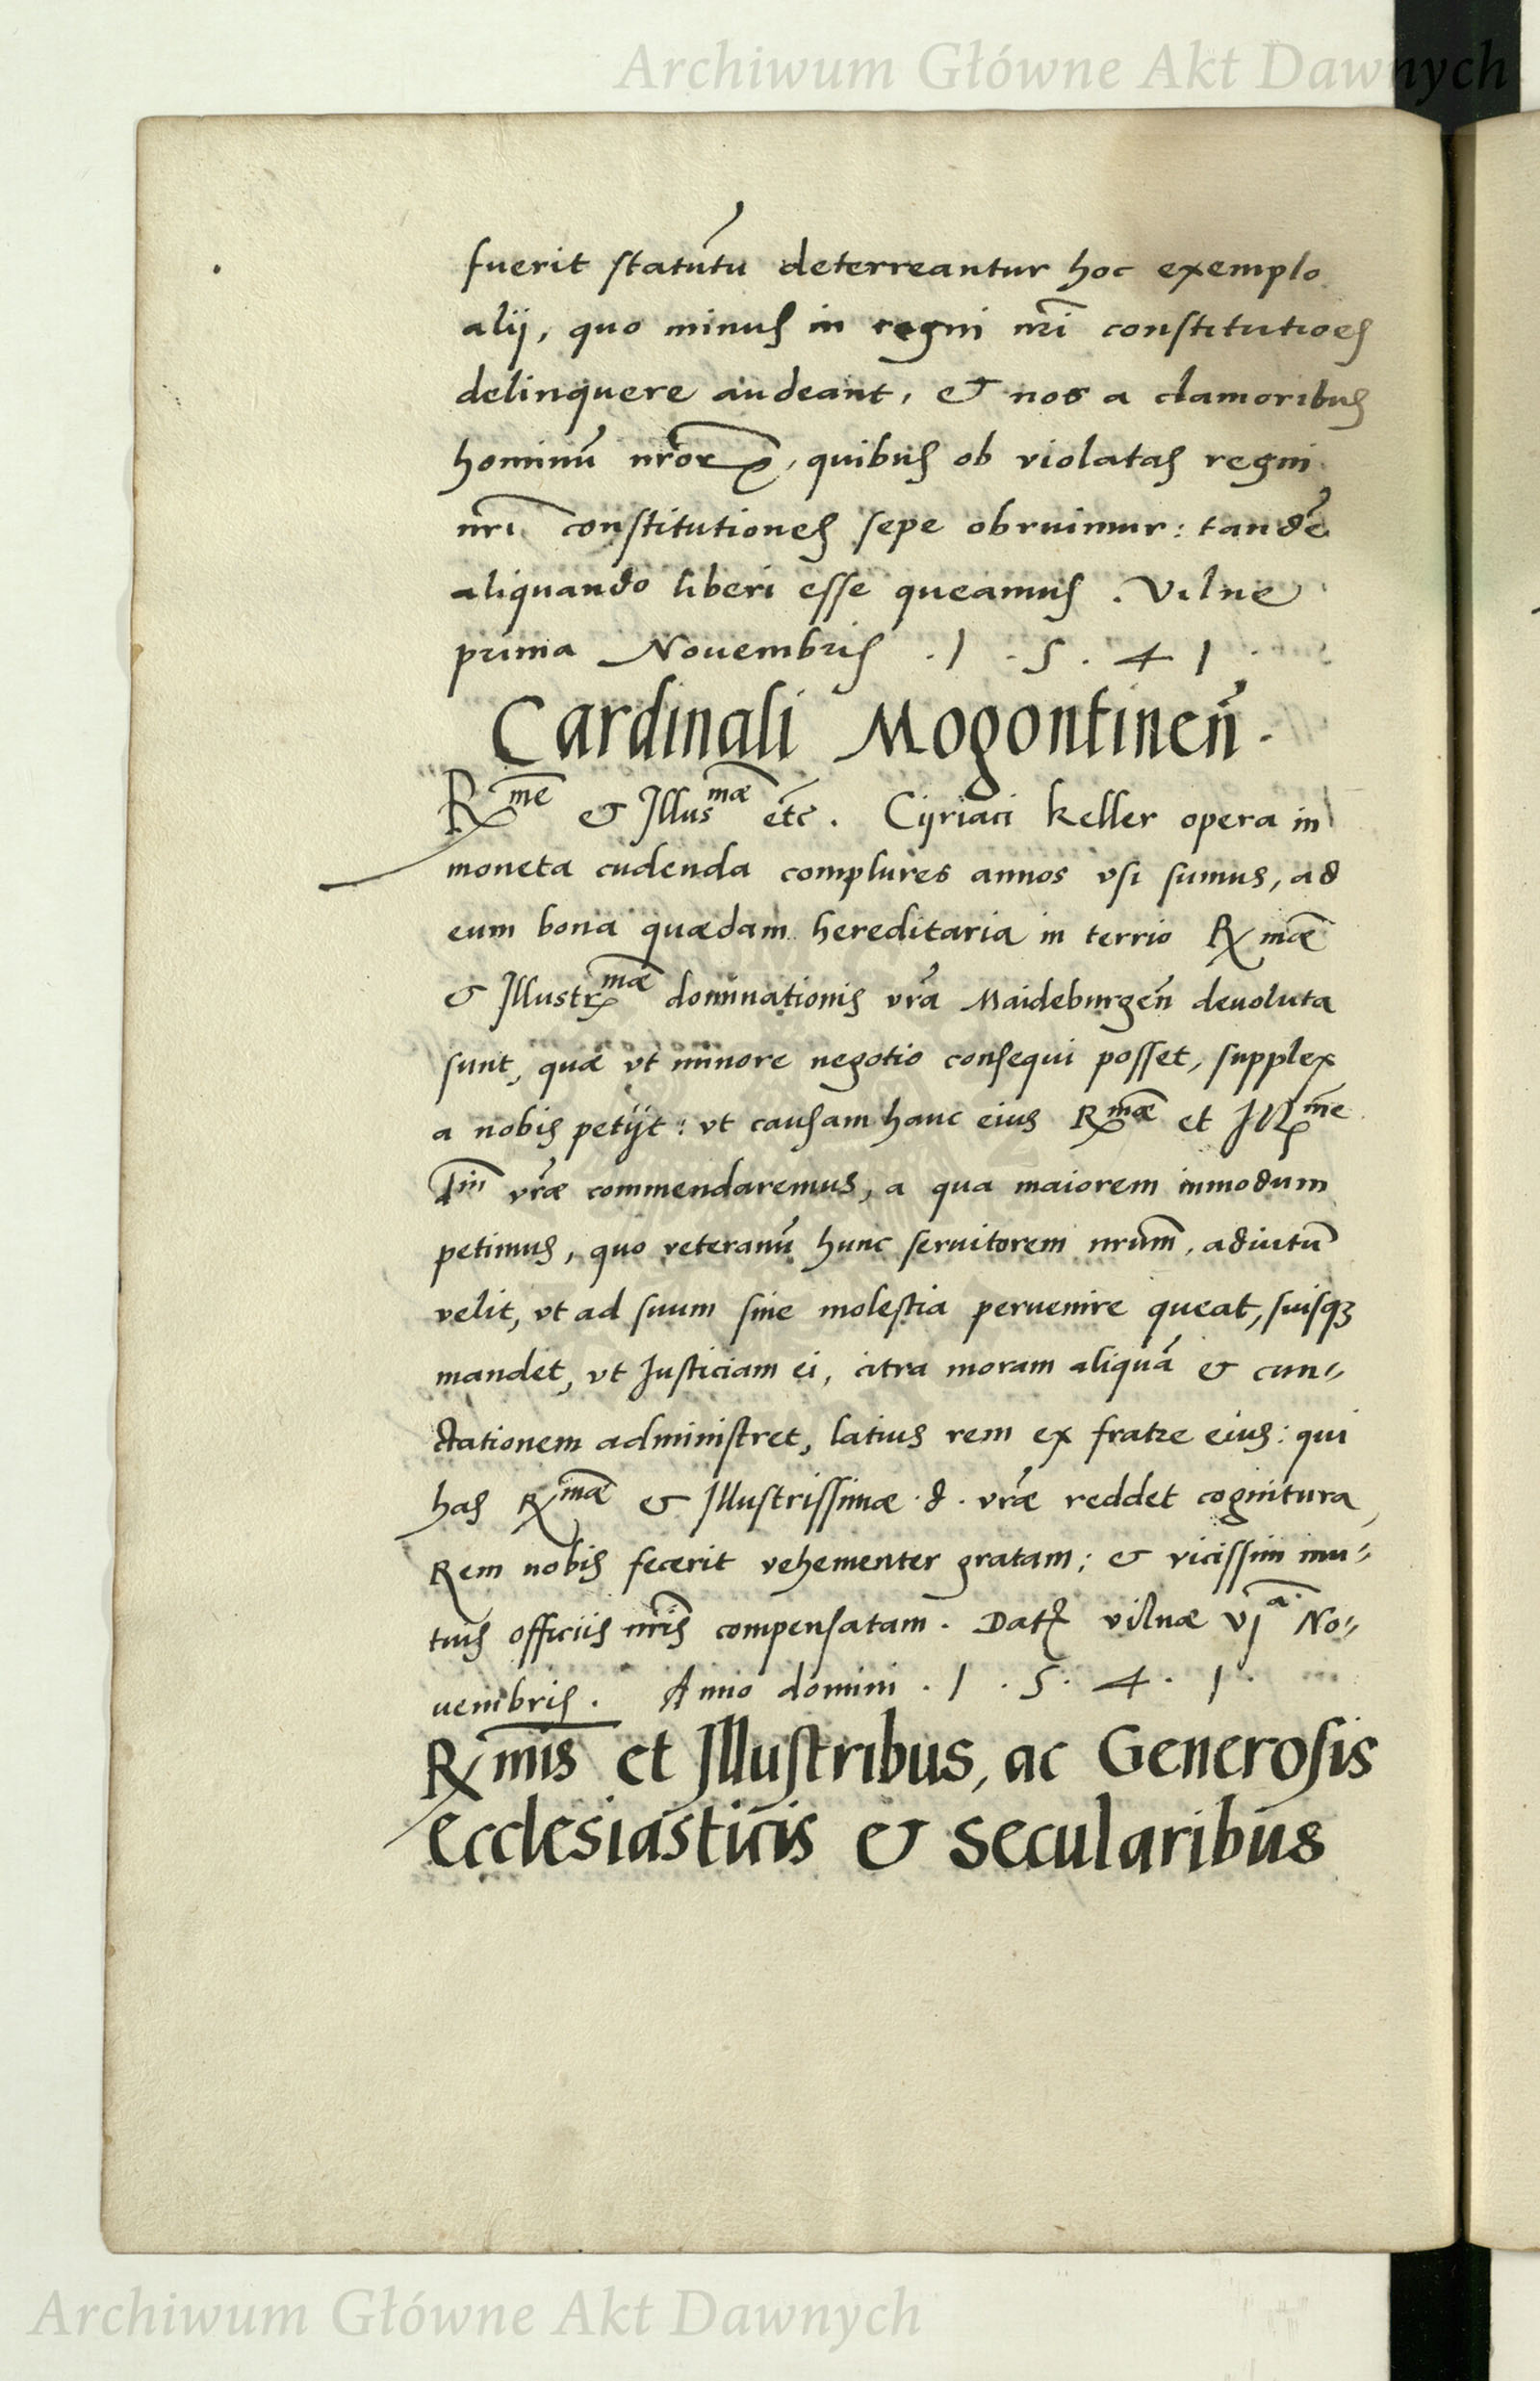 Archiwum Główne Akt Dawnych
fuerit statutũ deterreantur hoc exemplo
alij, quo minus in regni nr̃i constitutiões
delinquere audeant, & nos a clamoribus
hominũ nr̃oꝝ, quibus ob violatas regni
nr̃i constitutiones sepe obruimur: tandẽ
aliquando liberi esse queamus. Vilne
prima Nouembris .1.5.41
Cardinali Mogontineñ.
Rme & Illusmæ etc̃. Cyriaci Keller opera in
moneta cudenda complures annos vsi sumus, ad
eum bona quædam hereditaria in terrio Rmæ
& Illustrmæ dominationis vr̃a Maideburgeñ deuoluta
sunt, quæ vt minore negotio consequi posset, supplex
a nobis petijt: vt causam hanc eius Rmæ et Illme
vr̃æ commendaremus, a qua maiorem inmodum
petimus, quo veteranũ hunc seruitorem nr̃um, adiutũ
velit, vt ad suum sine molestia peruenire queat, suisqꝫ
mandet, vt Justiciam ei, citra moram aliquã & cun⸗
ctationem administret, latius rem ex fratre eius: qui
has Rmæ & Illustrissimæ .d. vr̃æ reddet cognitura,
Rem nobis fecerit vehementer gratam; & vicissim mu⸗
tuis officiis nr̃is compensatam. Datꝭ vilnæ vja No⸗
uembris. Anno domini .1.5.4.1.
Rmis et Illustribus, ac Generosis
Ecclesiasticis & Secularibus
Archiwum Główne Akt Dawnych